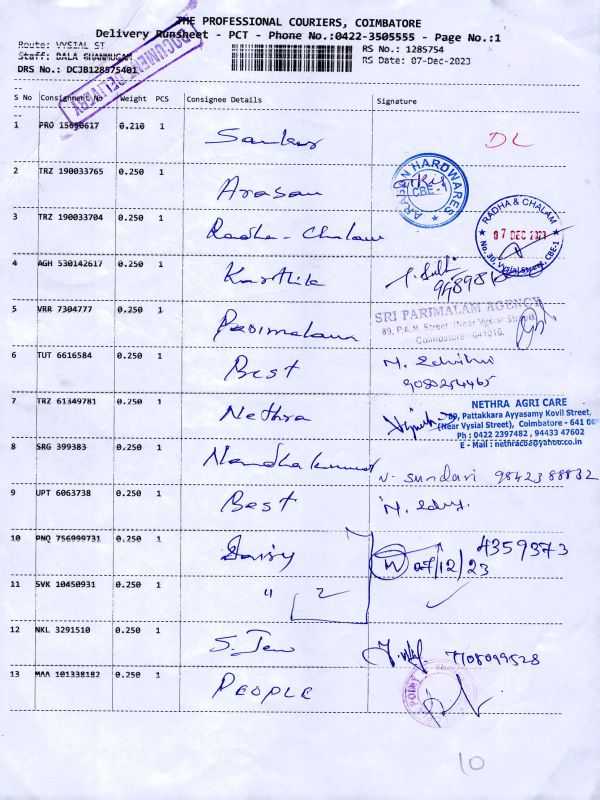 THE PROFESSIONAL COURIERS, COIMBATORE
Delivery Runsheet - PCT - Phone No.:0422-3505555 - Page No.:1
Route: VYSIAL ST
RS No.: 1285754
Staff: BALA SHANMUGAM
RS Date: 07-Dec-2023
DRS No.: DCJB128575401
DOCUMENT DELIVERY
S No Consignment No Weight PCS Consignee Details Signature
1 PRO 15690617 0.210 1 DL
2 TRZ 190033765 0.250 1 Arasan
ARASAN HARDWARES
CBE - 1
3 TRZ 190033704 0.250 1 Radha Chalam
RADHA & CHALAM
07 DEC 2023
No. 30, Vysial Street, CBE-1
4 AGH 530142617 0.250 1 Karthik
5 VRR 7304777 0.250 1 Parimalam
SRI PARIMALAM AGENCY
89, P.A.K. Street (Near Vysial Street)
Coimbatore - 641016.
6 TUT 6616584 0.250 1 Best
9080254465
7 TRZ 61349781 0.250 1 Nethra
NETHRA AGRI CARE
89, Pattakkara Ayyasamy Kovil Street,
(Near Vysial Street), Coimbatore - 641 00
Ph : 0422 2397482 , 94433 47602
E - Mail : nethracbe@yahoo.co.in
8 SRG 399383 0.250 1 Nandhakumar N. Sundari 9842388832
9 UPT 6063738 0.250 1 Best
10 PNQ 756999731 0.250 1 Daisy 4359373
07/12/23
11 SVK 10450931 0.250 1 " 2
12 NKL 3291510 0.250 1 S. Jew 7708099528
13 MAA 101338182 0.250 1 PEOPLE
POINT
10